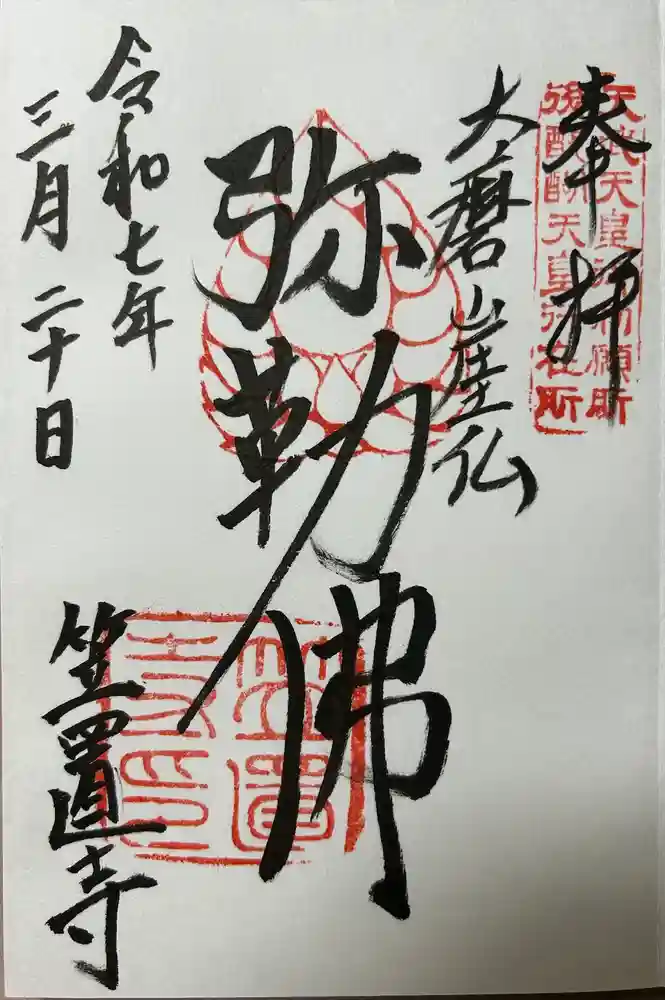 奉拝
天武天皇御勅願所
後醍醐天皇行在所
大磨崖仏
弥勒佛
令和七年
三月二十日
笠置寺
笠置
寺印